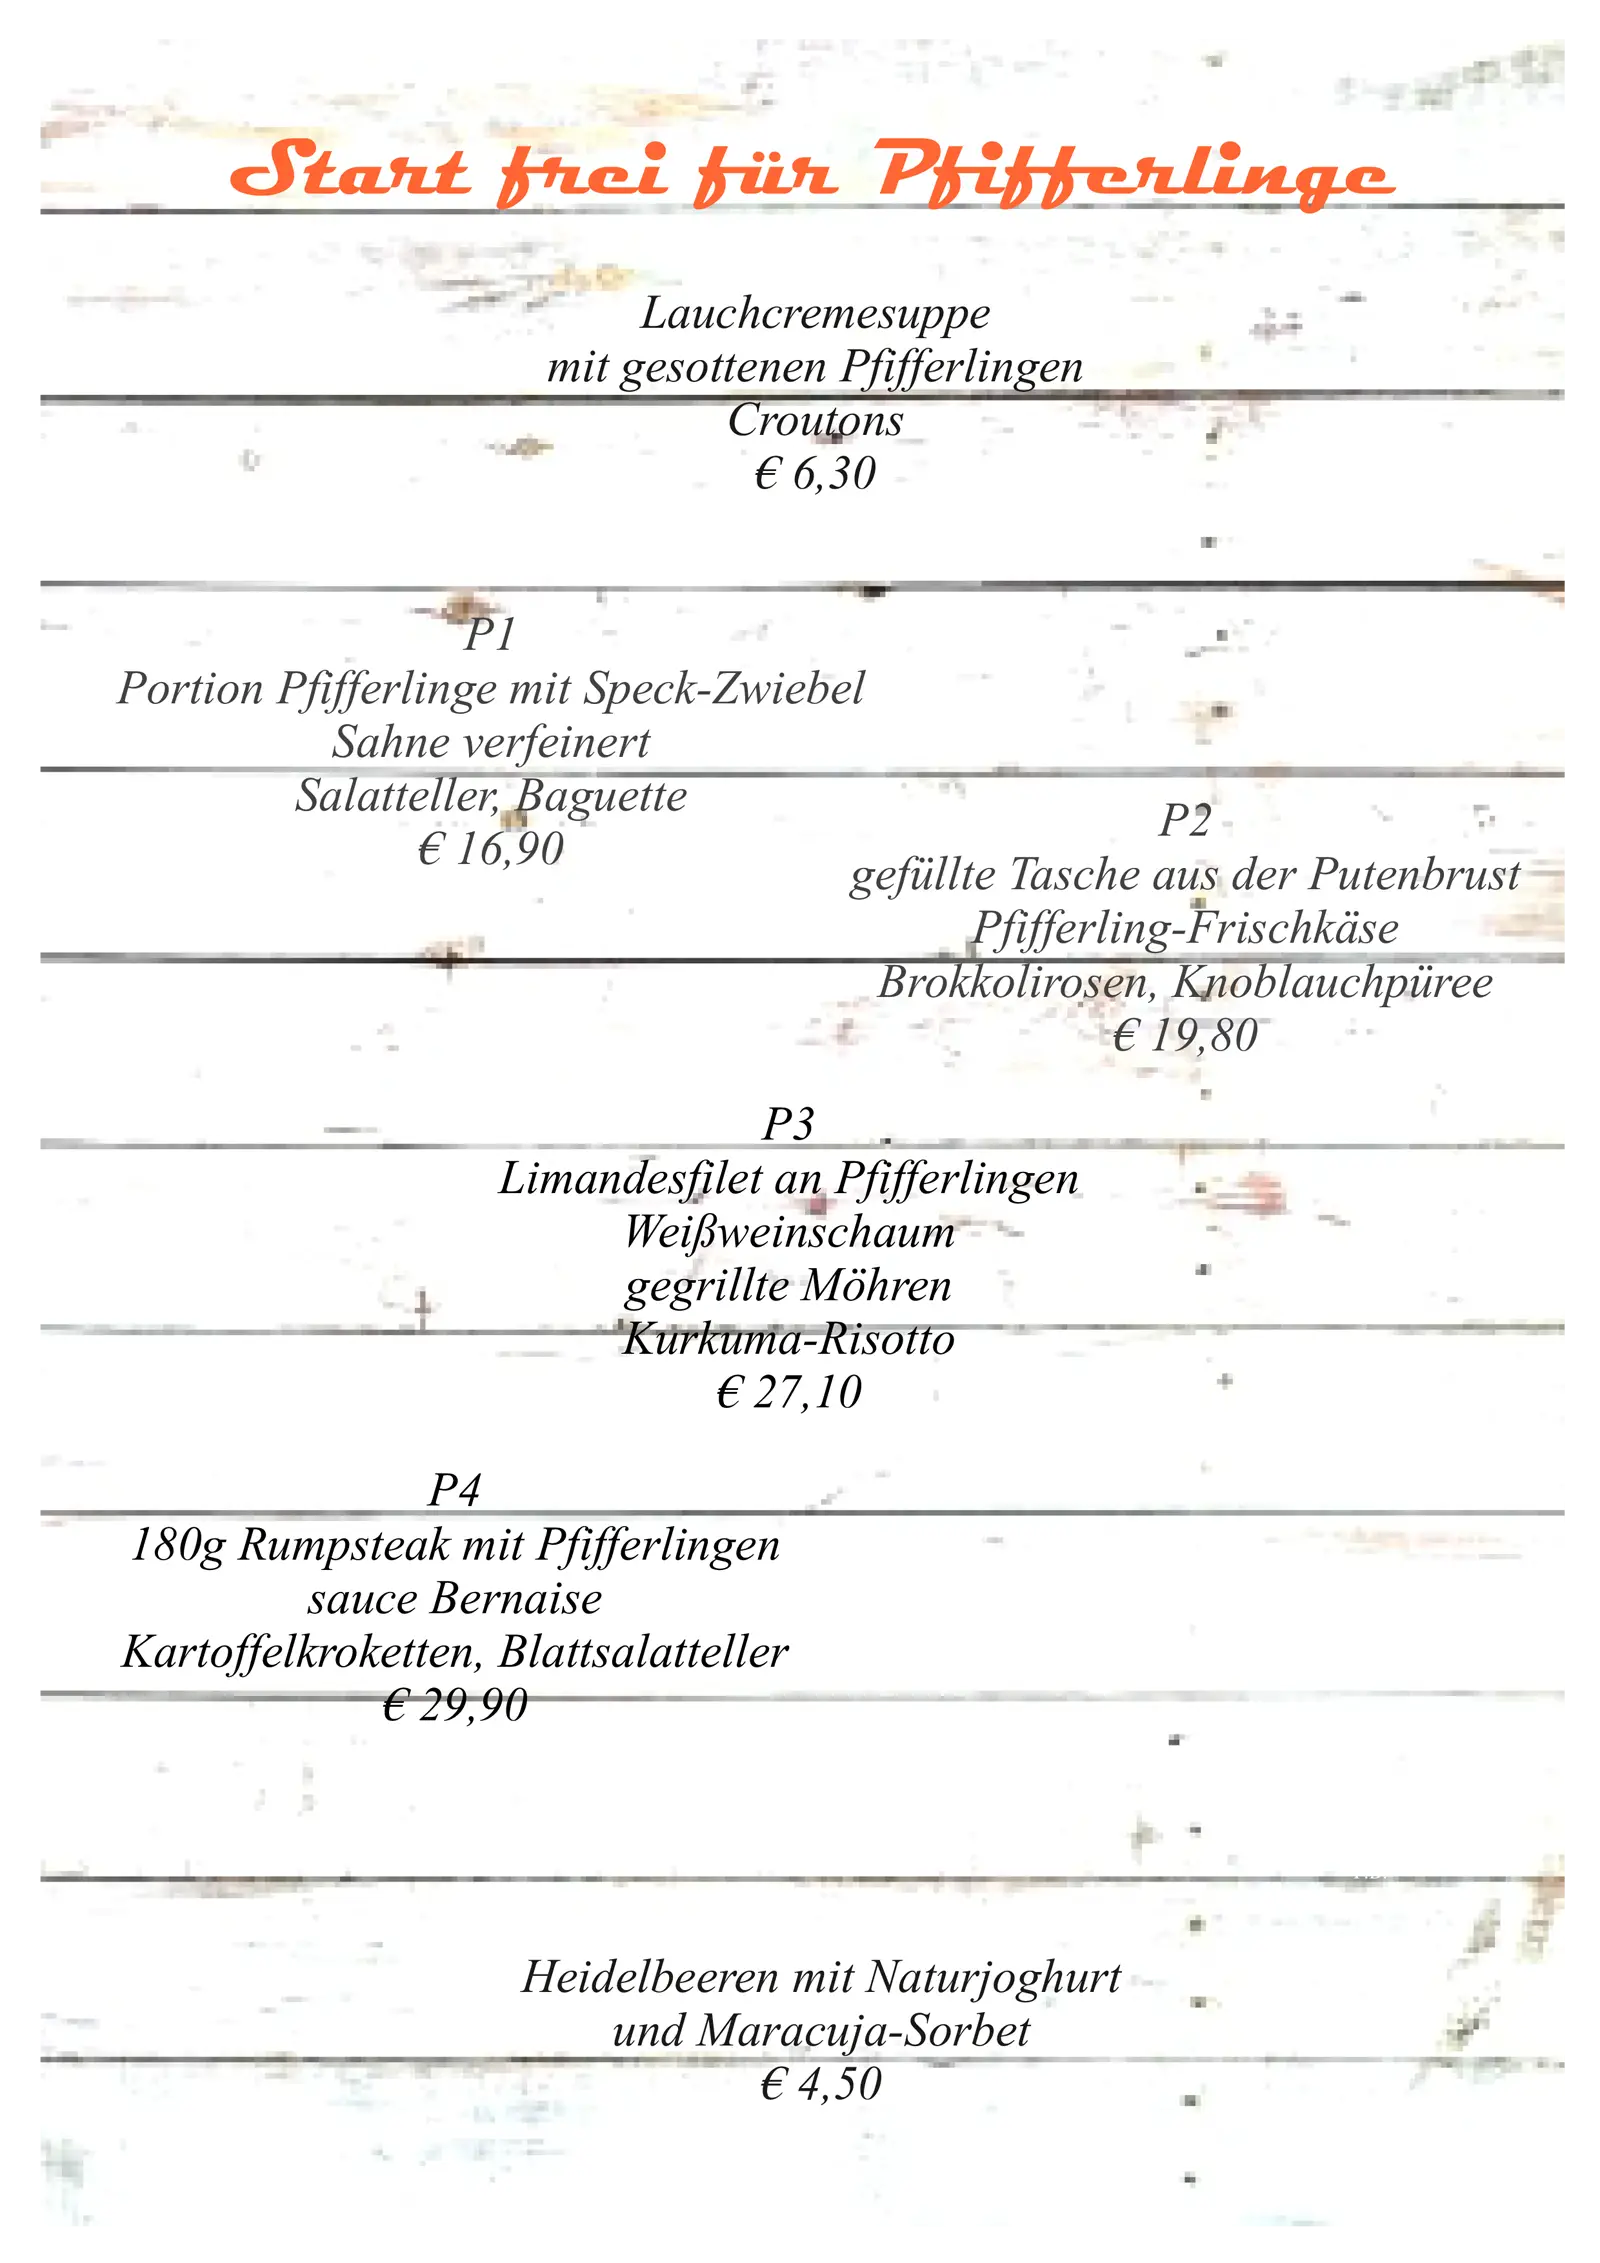 Start frei für Pfifferlinge
Lauchcremesuppe
mit gesottenen Pfifferlingen
Croutons
€ 6,30
P1
Portion Pfifferlinge mit Speck-Zwiebel
Sahne verfeinert
Salatteller, Baguette
€ 16,90
P2
gefüllte Tasche aus der Putenbrust
Pfifferling-Frischkäse
Brokkolirosen, Knoblauchpüree
€ 19,80
P3
Limandesfilet an Pfifferlingen
Weißweinschaum
gegrillte Möhren
Kurkuma-Risotto
€ 27,10
P4
180g Rumpsteak mit Pfifferlingen
sauce Bernaise
Kartoffelkroketten, Blattsalatteller
€ 29,90
Heidelbeeren mit Naturjoghurt
und Maracuja-Sorbet
€ 4,50